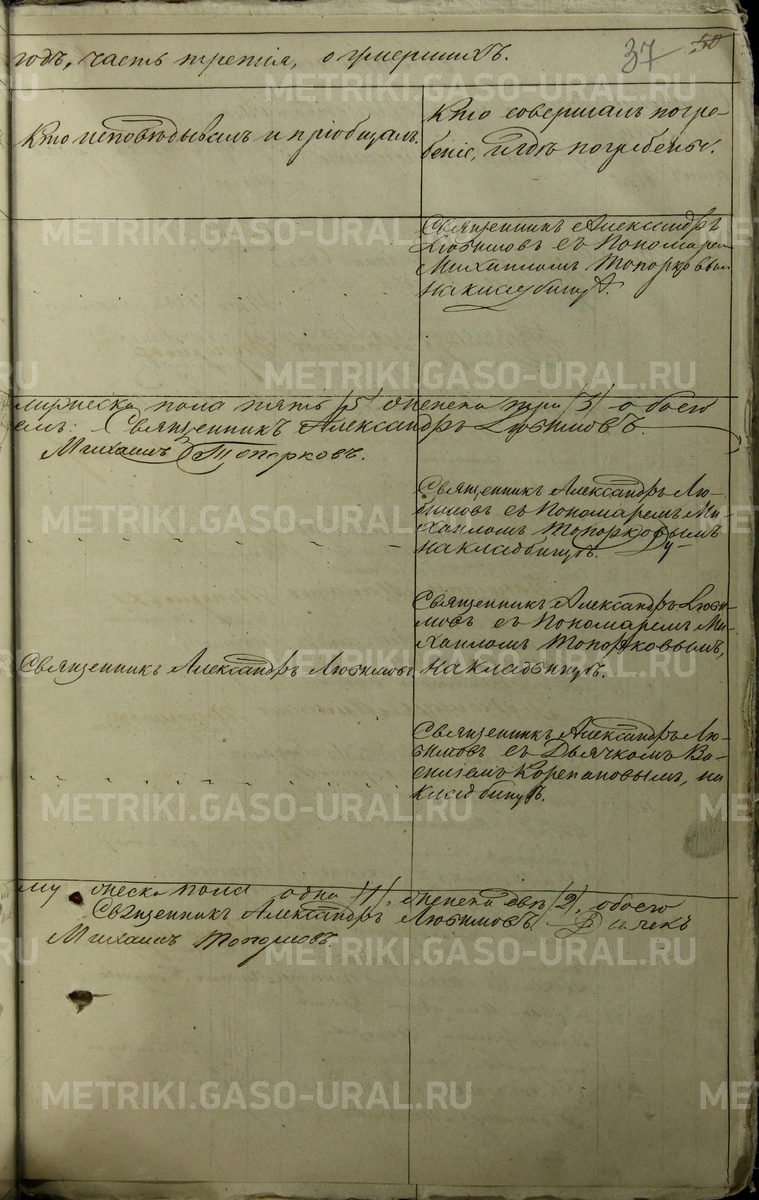 годъ, часть третія, о умершихъ.
37 50
Кто исповѣдывалъ и пріобщалъ.
Кто совершалъ погре-
беніе, и гдѣ погребены.
Священникъ Александръ
Любимовъ съ Пономарем
Михаиломъ Топорковым
на кладбищѣ.
мужеска пола пять /5/ женска три /3/ обоего
Священникъ Александръ Любимовъ.
Михаилъ Топорковъ.
Священникъ Александръ Лю-
бимовъ съ Пономаремъ Ми-
хаиломъ Топорковымъ
на кладбищѣ.
Священникъ Александръ Люби-
мовъ съ Пономаремъ Ми-
хаиломъ Топорковымъ,
на кладбищѣ.
Священникъ Александръ Любимовъ.
Священникъ Александръ Лю-
бимовъ съ Дьячкомъ Ва-
силіемъ Корепановымъ, на
кладбищѣ.
му жеска пола одно /1/, женска двѣ /2/, обоего
Священникъ Александръ Любимовъ. Дьячекъ
Михаилъ
METRIKI.GASO-URAL.RU